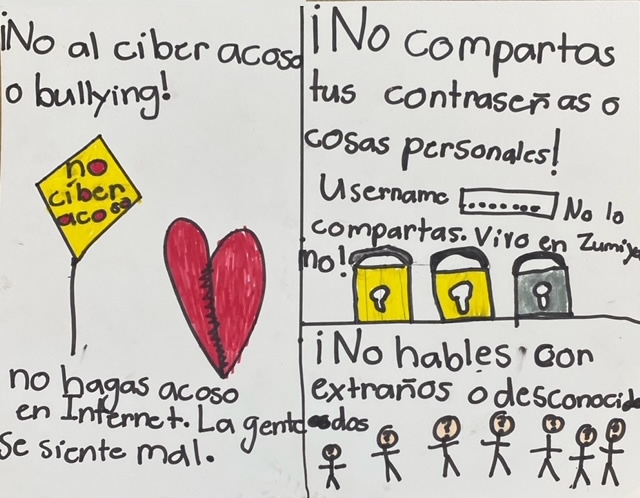 ¡No al ciber acoso
o bullying!
no
ciber
acoso
no hagas acoso
en Internet. La gente
se siente mal.
¡No compartas
tus contraseñas o
cosas personales!
Username ....... No lo
compartas. Vivo en Zumiya
no!
¡No hables con
extraños o desconocid
dos